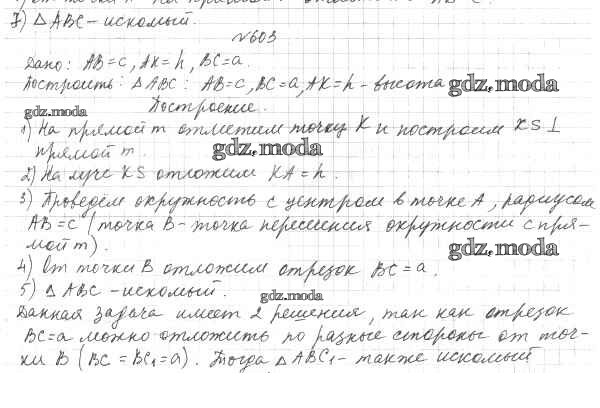 7) △ ABC – искомый.
№603
Дано: AB=c, AK=h, BC=a.
Построить: △ ABC: AB=c, BC=a, AK=h – высота gdz.moda
gdz.moda Построение.
1) На прямой m отметим точку K и построим KS ⊥
прямой m. gdz.moda
2) На луче KS отложим KA=h.
3) Проведём окружность с центром в точке A, радиусом
AB=c (точка B – точка пересечения окружности с пря-
мой m). gdz.moda
4) От точки B отложим отрезок BC=a.
5) △ ABC – искомый. gdz.moda
Данная задача имеет 2 решения, так как отрезок
BC=a можно отложить по разные стороны от точ-
ки B (BC=BC₁=a). Тогда △ ABC₁ – также искомый